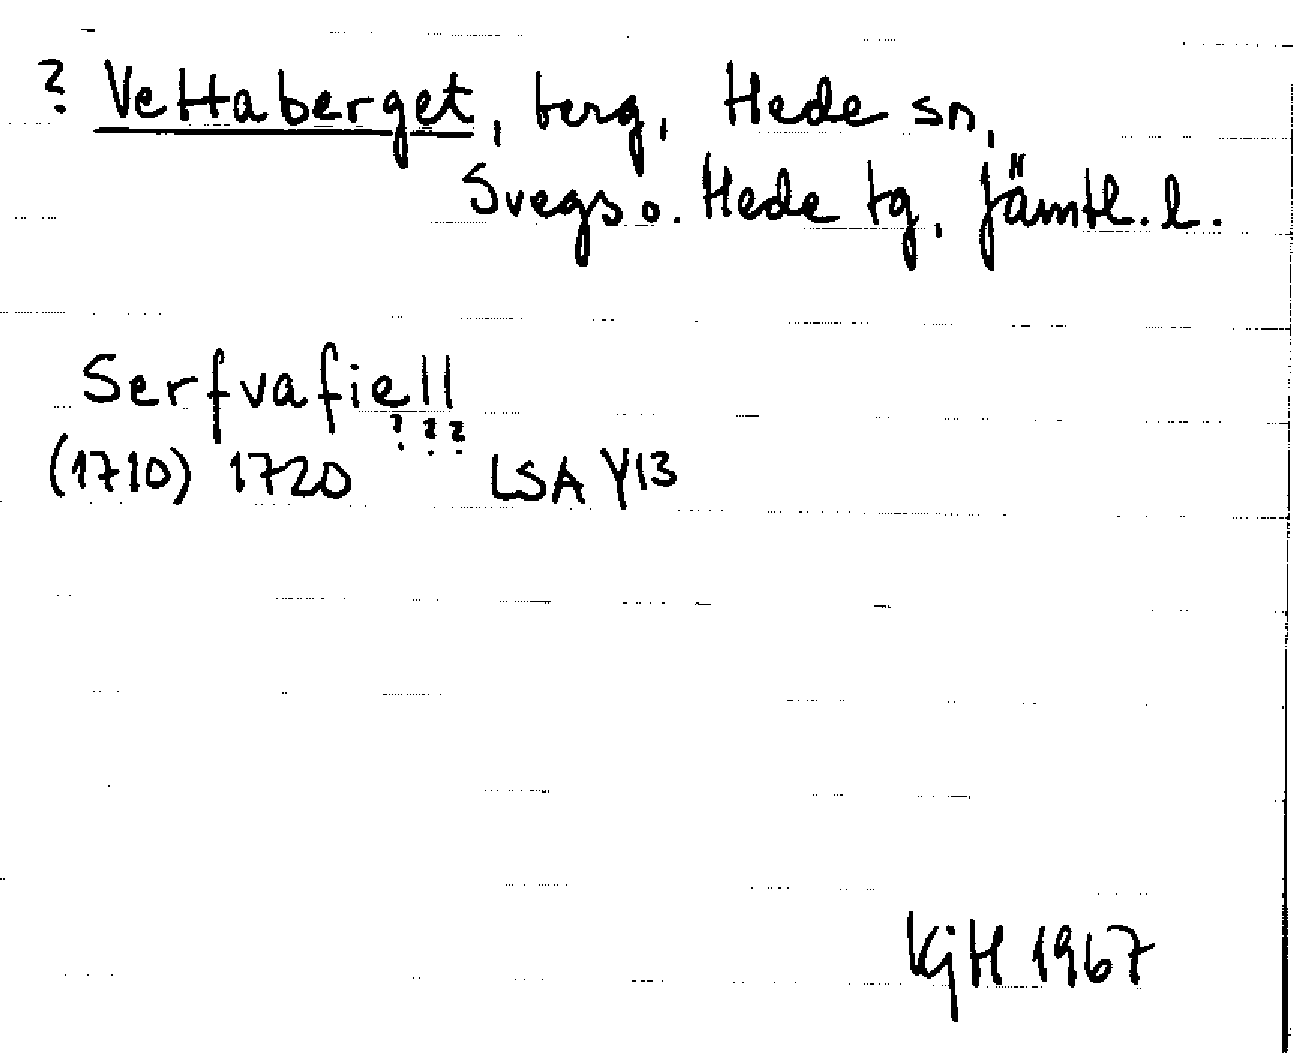 ? Vettaberget, berg, Hede sn,
Svegs o. Hede tg, Jämtl. l.
Serfvafiell
? ? ?
(1710) 1720 LSA Y13
KjH 1967